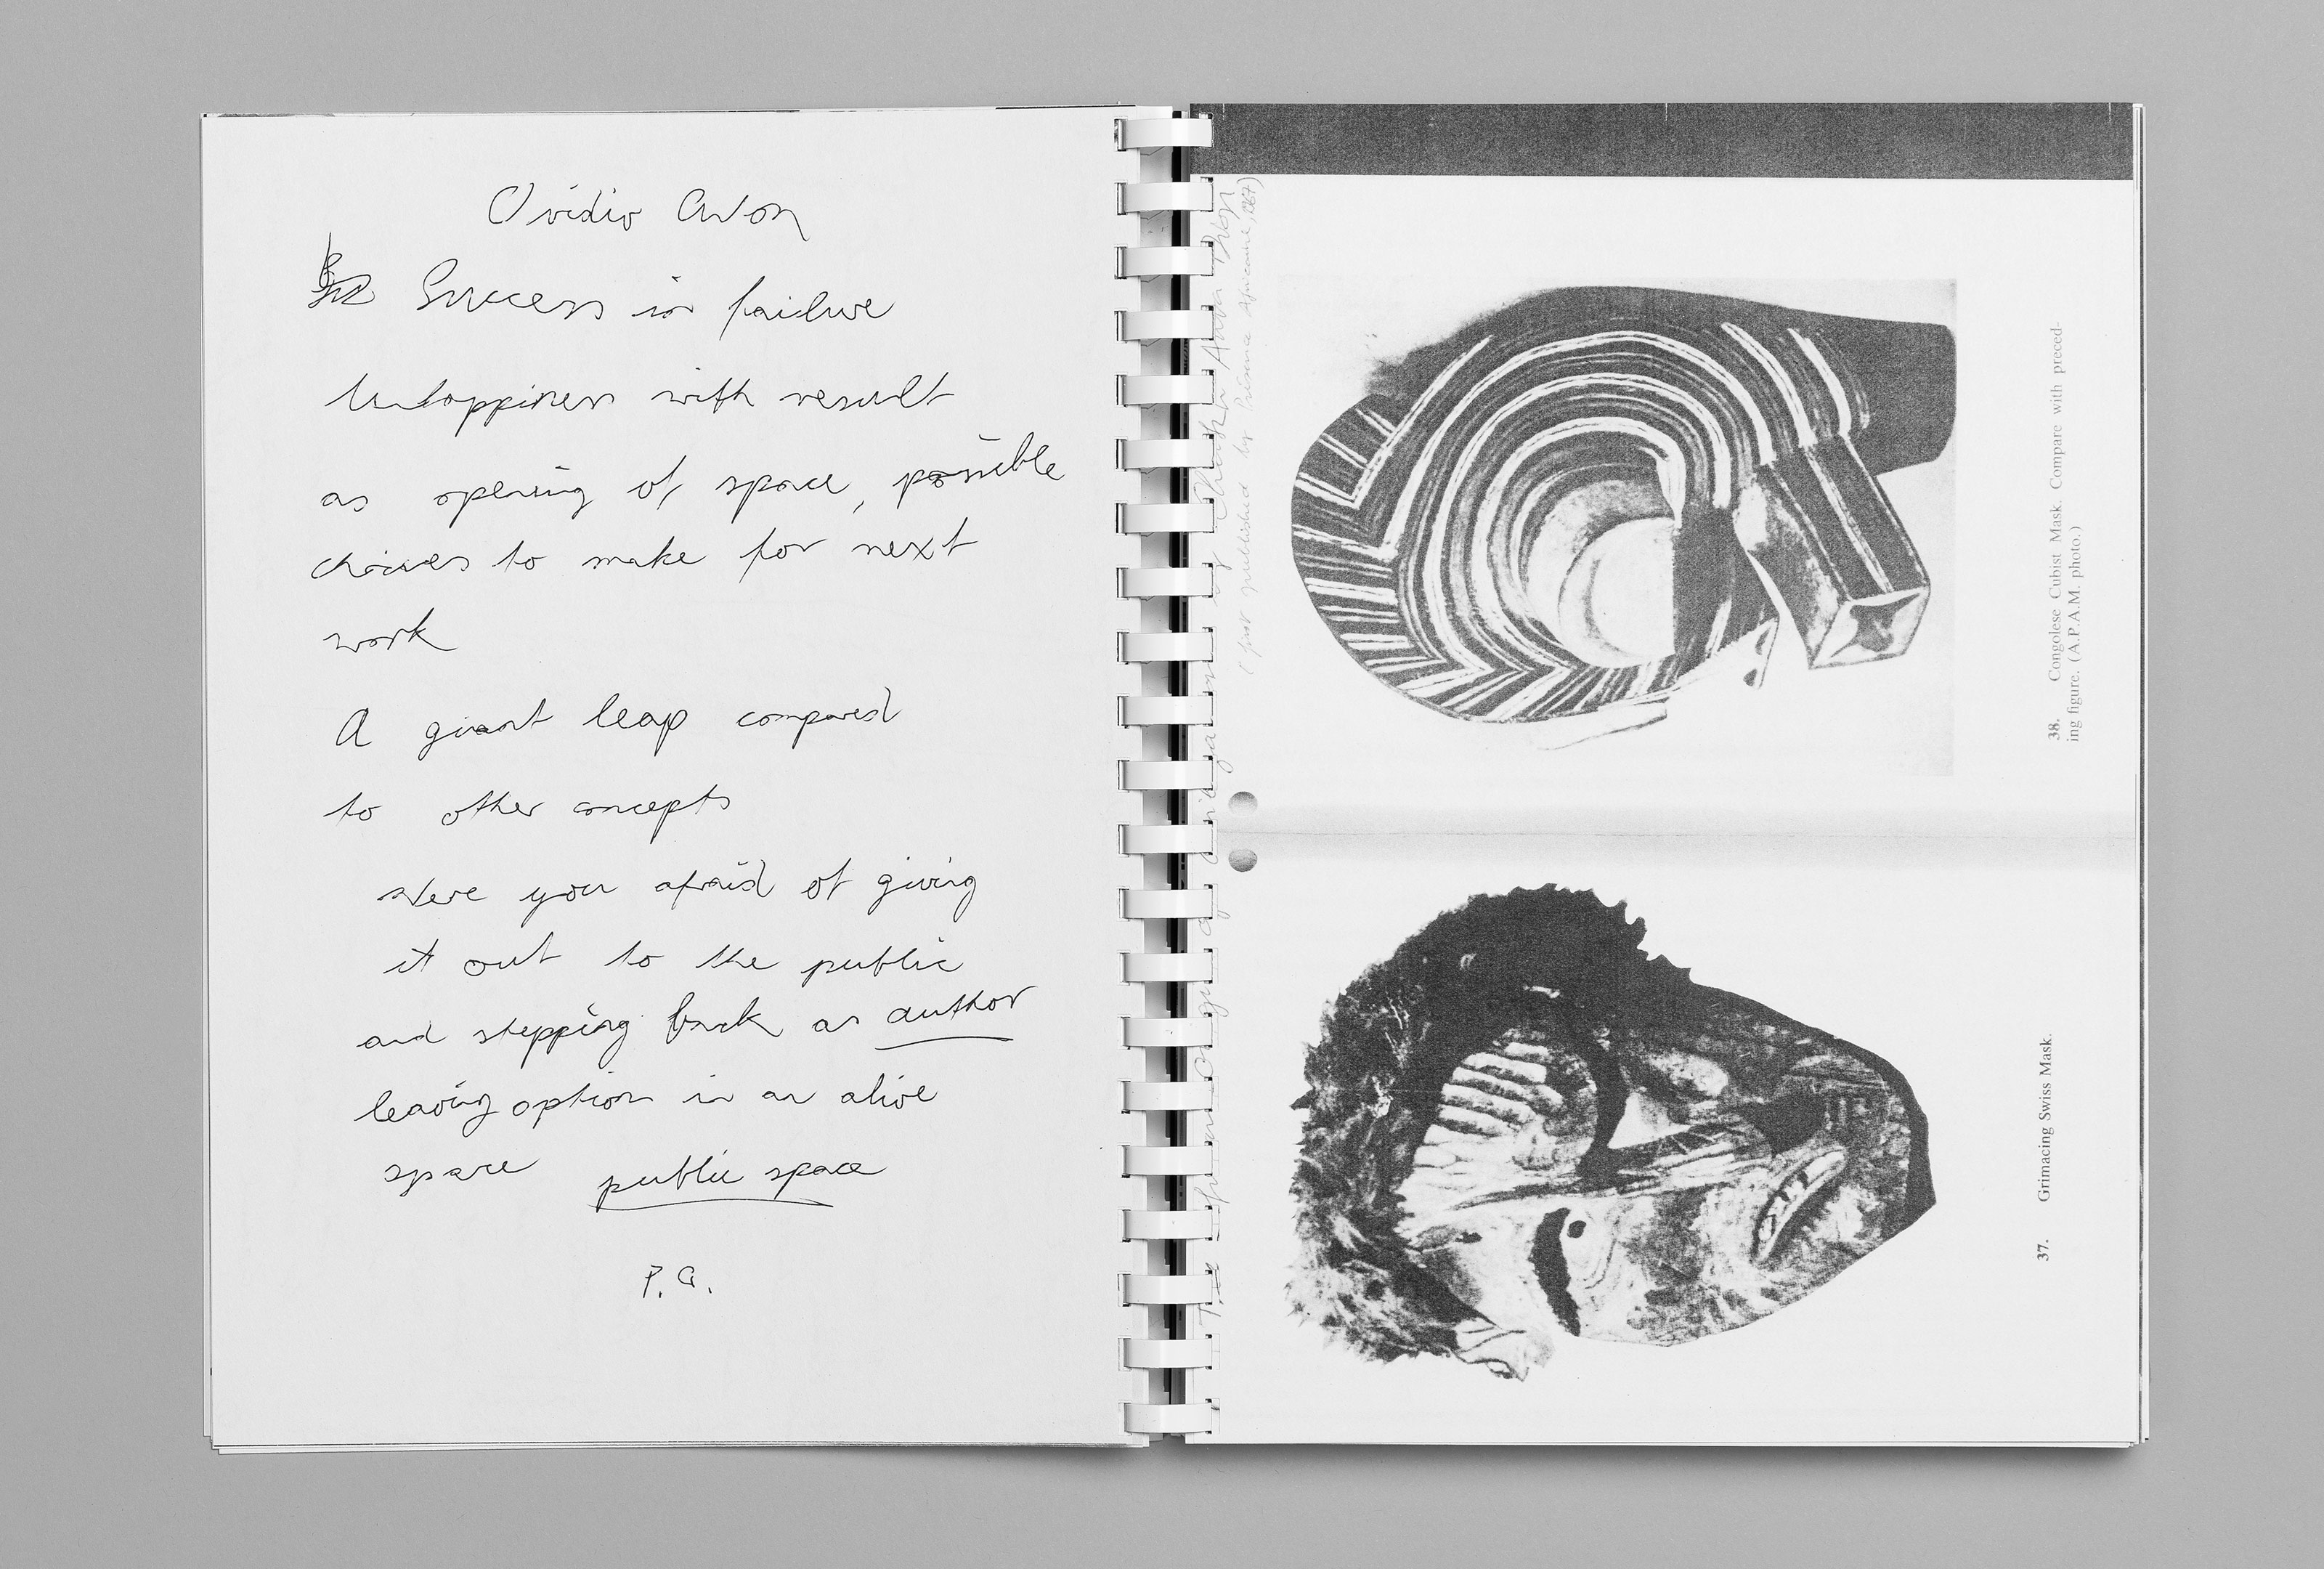 Ovidiu Avon
Success in failure
Unhappiness with result
as opening of space, possible
choices to make for next
work
A giant leap compared
to other concepts
Were you afraid of giving
it out to the public
and stepping back as author
leaving option in an alive
space public space
P. G.
(first published by Présence Africaine, 1967)
38. Congolese Cubist Mask. Compare with preced-
ing figure. (A.P.A.M. photo.)
37. Grimacing Swiss Mask.